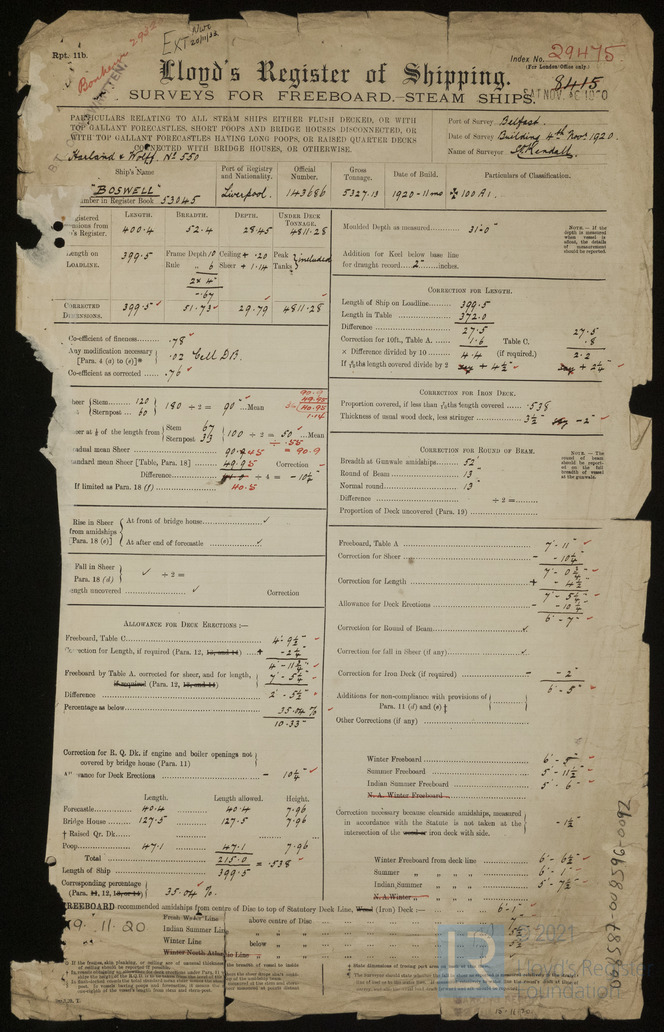 Rpt. 11b.
EXT
20/11/22
Index No. 29475
(For London Office only.)
Lloyd's Register of Shipping.
8415
SURVEYS FOR FREEBOARD.—STEAM SHIPS.
PARTICULARS RELATING TO ALL STEAM SHIPS EITHER FLUSH DECKED, OR WITH
TOP GALLANT FORECASTLES, SHORT POOPS AND BRIDGE HOUSES DISCONNECTED, OR
WITH TOP GALLANT FORECASTLES HAVING LONG POOPS, OR RAISED QUARTER DECKS
CONNECTED WITH BRIDGE HOUSES, OR OTHERWISE.
Port of Survey Belfast
Date of Survey Building 4th Novr 1920
Name of Surveyor
Harland & Wolff No 550
Ship's Name
Port of Registry and Nationality.
Official Number.
Gross Tonnage.
Date of Build.
Particulars of Classification.
"BOSWELL"
Liverpool
143686
5327.13
1920-11 mo
100 A1.
Number in Register Book 53045
LENGTH. BREADTH. DEPTH. UNDER DECK TONNAGE.
400.4 52.4 28.45 4811.28
Length on LOADLINE. 399.5
Frame Depth 10 Ceiling + .20 Peak Tanks included
Rule 6 Sheer + 1.14
.67
CORRECTED DIMENSIONS. 399.5 51.73 29.79 4811.28
Moulded Depth as measured 31.0"
Addition for Keel below base line
for draught record 2" inches.
NOTE.—If the depth is measured when vessel is afloat, the details of measurement should be reported.
CORRECTION FOR LENGTH.
Length of Ship on Loadline 399.5
Length in Table 372.0
Difference 27.5 27.5
Correction for 10ft., Table A. 1.6 Table C. .8
× Difference divided by 10 4.4 (if required.) 2.2
Co-efficient of fineness .78
Any modification necessary [Para. 4 (a) to (e)] .02 Cell D.B.
Co-efficient as corrected .76
CORRECTION FOR IRON DECK.
Proportion covered, if less than length covered .538
Thickness of usual wood deck, less stringer 3½ -2"
Stem 120
Sternpost 60
180 ÷ 2 = 90" Mean
Stem 67
Sternpost 33
100 ÷ 2 = 50" Mean
Gradual mean Sheer
Standard mean Sheer [Table, Para. 18] 49.95 Correction
Difference ÷ 4 = -10¼
If limited as Para. 18 (f) 40.5
CORRECTION FOR ROUND OF BEAM.
Breadth at Gunwale amidships 52'
Round of Beam 13"
Normal round 13"
Difference ÷ 2 =
Proportion of Deck uncovered (Para. 19)
Rise in Sheer from amidships [Para. 18 (e)]
At front of bridge house
At after end of forecastle
Fall in Sheer Para. 18 (d) ÷ 2 =
Length uncovered Correction
Freeboard, Table A 7'-11"
Correction for Sheer - 10¼
7'-0¾
Correction for Length + 4½
7'-5¼
Allowance for Deck Erections - 10¼
6'-7"
Correction for Round of Beam
Correction for fall in Sheer (if any)
Correction for Iron Deck (if required) - 2"
6'-5"
Additions for non-compliance with provisions of Para. 11 (d) and (e) †
Other Corrections (if any)
ALLOWANCE FOR DECK ERECTIONS :—
Freeboard, Table C 4'-9½
Correction for Length, if required (Para. 12, 13, and 14) + 2¼
4'-11¾
Freeboard by Table A, corrected for sheer, and for length, if required (Para. 12, 13, and 14) 7'-5¼
Difference 2'-5½
Percentage as below 35.04 %
10.33
Correction for R. Q. Dk. if engine and boiler openings not
covered by bridge house (Para. 11)
Allowance for Deck Erections - 10¼
Winter Freeboard 6'-5"
Summer Freeboard 5'-11½
Indian Summer Freeboard 5'-6"
N. A. Winter Freeboard
Correction necessary because clearside amidships, measured
in accordance with the Statute is not taken at the
intersection of the wood or iron deck with side. -1½
Length. Length allowed. Height.
Forecastle 40.4 40.4 7.96
Bridge House 127.5 127.5 7.96
† Raised Qr. Dk.
Poop 47.1 47.1 7.96
Total 215.0 = .538
Length of Ship 399.5
Corresponding percentage (Para. 11, 12, 13, or 14) 35.04 %.
Winter Freeboard from deck line 6'-6½
Summer 6'-1"
Indian Summer 5'-7½
N.A. Winter
FREEBOARD recommended amidships from centre of Disc to top of Statutory Deck Line, Wood (Iron) Deck :— 6'-1"
Fresh Water Line above centre of Disc
Indian Summer Line
Winter Line below
Winter North Atlantic Line
9.11.20
008587-008596-0092
LR
© 2021
Lloyd's Register
Foundation